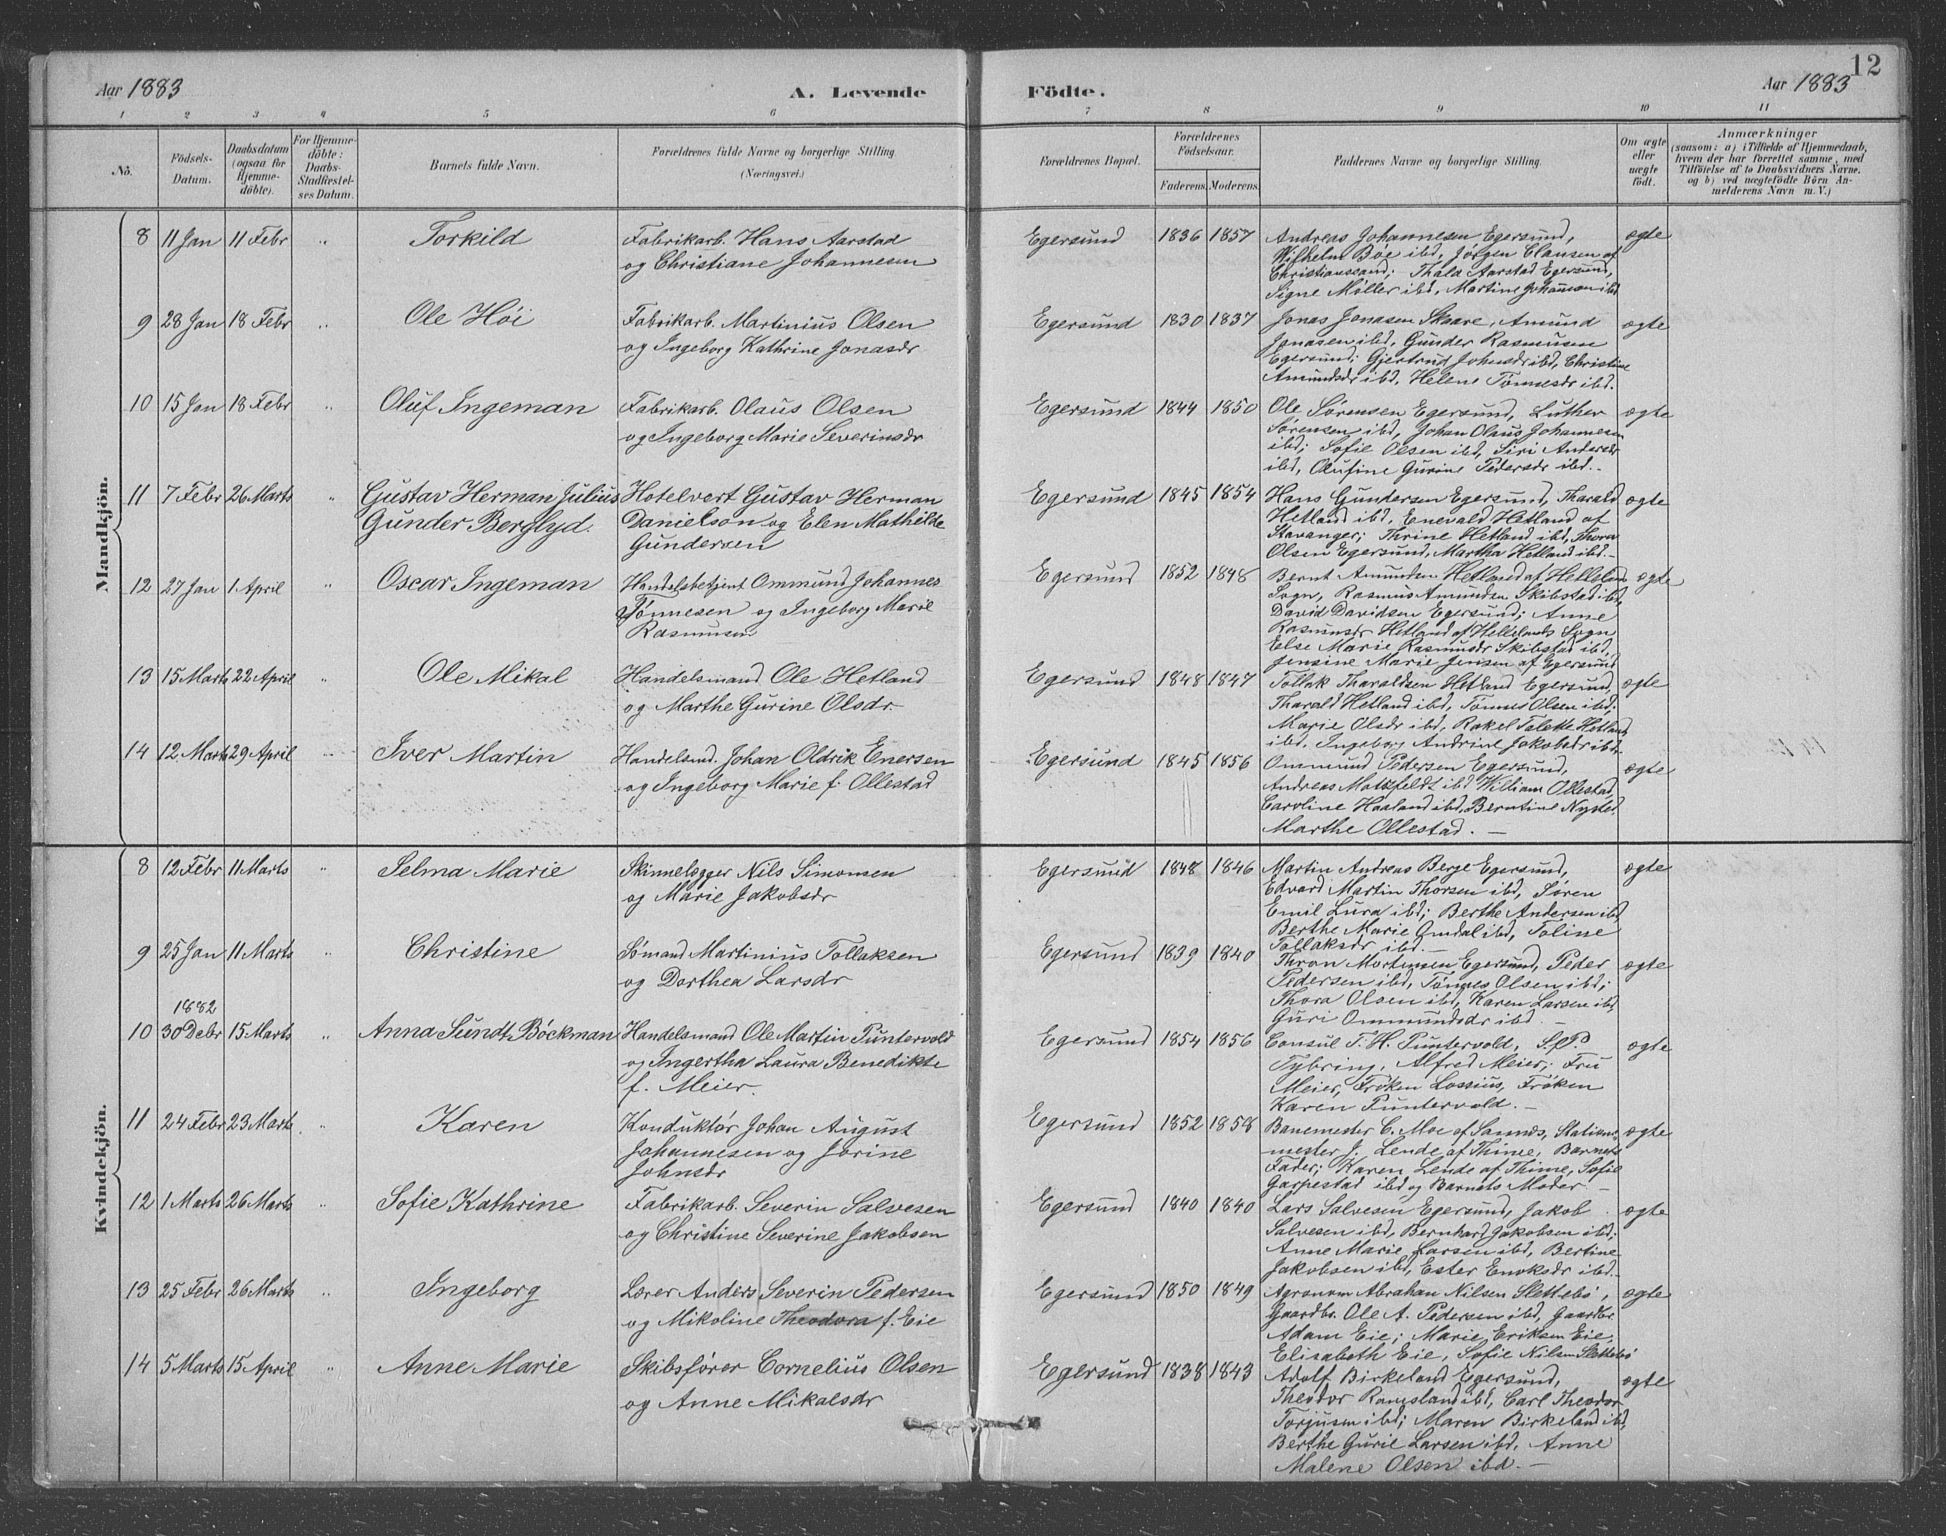 Aar 1883
A. Levende
Födte.
Aar 1883
12
1 2 3 4 5 6 7 8 9 10 11
No.
Födsels-
Datum.
Daabsdatum
(ogsaa for
Hjemme-
döbte).
For Hjemme-
döbte:
Daabs-
Stadfæstel-
ses Datum.
Barnets fulde Navn.
Forældrenes fulde Navne og borgerlige Stilling
(Næringsvei.)
Forældrenes Bopæl.
Forældrenes
Födselsaar.
Faderens. Moderens.
Faddernes Navne og borgerlige Stilling.
Om ægte
eller
uægte
födt.
Anmærkninger
(saasom: a) i Tilfælde af Hjemmedaab,
hvem der har forrettet samme, med
Tilföielse af to Daabsvidners Navne.
og b) ved uægtefödte Börn An-
melderens Navn m. V.)
Mandkjön.
8 11 Jan 11 Febr " Torkild
Fabrikarb. Hans Aarstad
og Christiane Johannesen
Egersund 1836 1857
Andreas Johannesen Egersund,
Wilhelm Bøe ibd, Jørgen Clausen af
Christianssand; Thala Aarstad Egersund,
Signe Møller ibd, Martine Johannesen ibd
ægte
9 28 Jan 18 Febr " Ole Høi
Fabrikarb. Martinius Olsen
og Ingeborg Kathrine Jonasdr
Egersund 1830 1837
Jonas Jonasen Skaare, Amund
Jonasen ibd, Gunder Rasmusen
Egersund; Gjertrud Johnsdr ibd, Christine
Amundsdr ibd, Helene Tønnesdr ibd.
ægte
10 15 Jan 18 Febr " Oluf Ingeman
Fabrikarb. Olaus Olsen
og Ingeborg Marie Severinsdr
Egersund 1844 1850
Ole Sørensen Egersund, Luther
Sørensen ibd, Johan Olaus Johannesen
ibd; Sofie Olsen ibd, Siri Andersdr
ibd, Olufine Gurine Pedersdr ibd.
ægte
11 7 Febr 26 Marts " Gustav Herman Julius
Gunder Berglyd.
Hotelvert Gustav Herman
Danielson og Elen Mathilde
Gundersen
Egersund 1845 1854
Hans Gundersen Egersund, Tharald
Hetland ibd, Enevald Hetland af
Stavanger; Thrine Hetland ibd, Thora
Olsen Egersund, Martha Hetland ibd.
ægte
12 27 Jan 1 April " Oscar Ingeman
Handelsbetjent Ommund Johannes
Tønnesen og Ingeborg Marie
Rasmusen
Egersund 1852 1848
Bernt Amundsen Hetland af Hellelands
Sogn, Rasmus Amundsen Skibstad ibd,
David Davidsen Egersund; Anne
Rasmusdr Hetland af Hellelands Sogn
Else Marie Rasmusdr Skibstad ibd,
Jensine Marie Jensen af Egersund
ægte
13 15 Marts 22 April " Ole Mikal
Handelsmand Ole Hetland
og Marthe Gurine Olsdr
Egersund 1848 1847
Tollak Tharaldsen Hetland Egersund,
Tharald Hetland ibd, Tønnes Olsen ibd;
Marie Olsdr ibd, Rakel Talette Hetland
ibd, Ingeborg Andrine Jakobsdr ibd.
ægte
14 12 Marts 29 April " Iver Martin
Handelsmd. Johan Oldrik Enersen
og Ingeborg Marie f. Ollestad
Egersund 1845 1856
Ommund Pedersen Egersund,
Andreas Motzfeldt ibd William Ollestad,
Caroline Haaland ibd, Berntine Nysted,
Marthe Ollestad.
ægte
Kvindekjön.
8 12 Febr 11 Marts " Selma Marie
Skinnelægger Nils Simonsen
og Marie Jakobsdr
Egersund 1848 1846
Martin Andreas Berge Egersund,
Edvard Martin Thorsen ibd, Søren
Emil Lura ibd; Berthe Andersen ibd
Berthe Marie Omdal ibd, Taline
Tollaksdr ibd.
ægte
9 25 Jan 11 Marts " Christine
Sømand Martinius Tollaksen
og Dorthea Larsdr
Egersund 1839 1840
Thron Mortensen Egersund, Peder
Pedersen ibd, Tønnes Olsen ibd;
Thora Olsen ibd, Karen Larsen ibd,
Guri Ommundsdr ibd.
ægte
1882
10 30 Debr 15 Marts " Anna Sundt Bøckman
Handelsmand Ole Martin Puntervold
og Ingertha Laura Benedikte
f. Meier.
Egersund 1854 1856
Consul T. H. Puntervold, S. P.
Tybring, Alfred Meier; Fru
Meier, Frøken Lossius, Frøken
Karen Puntervold.
ægte
11 24 Febr 23 Marts " Karen
Konduktør Johan August
Johannesen og Jorine
Johnsdr
Egersund 1852 1858
Banemester C. Moe af Sannæs, Stations-
mester J. Lende af Thime, Barnets
Fader; Karen Lende af Thime, Sofie
Garpestad ibd og Barnets Moder.
ægte
12 1 Marts 26 Marts " Sofie Kathrine
Fabrikarb. Severin Salvesen
og Christine Severine Jakobsen
Egersund 1840 1840
Lars Salvesen Egersund, Jakob
Salvesen ibd, Bernhard Jakobsen ibd;
Anne Marie Larsen ibd, Bertine
Jakobsen ibd, Ester Enoksdr ibd.
ægte
13 25 Febr 26 Marts " Ingeborg
Lærer Anders Severin Pedersen
og Mikoline Theodora f. Eie
Egersund 1850 1849
Agronom Abrahan Nilsen Slettebø,
Gaardbr. Ole A. Pedersen ibd, Gaardbr
Adam Eie; Marie Eriksen Eie,
Elisabeth Eie, Sofie Nilsen Slettebø
ægte
14 5 Marts 15 April " Anne Marie
Skibsfører Cornelius Olsen
og Anne Mikalsdr
Egersund 1838 1843
Adolf Birkeland Egersund,
Theodor Ramsland ibd, Carl Theodor
Torjusen ibd; Maren Birkeland ibd,
Berthe Gurie Larsen ibd, Anne
Malene Olsen ibd.
ægte